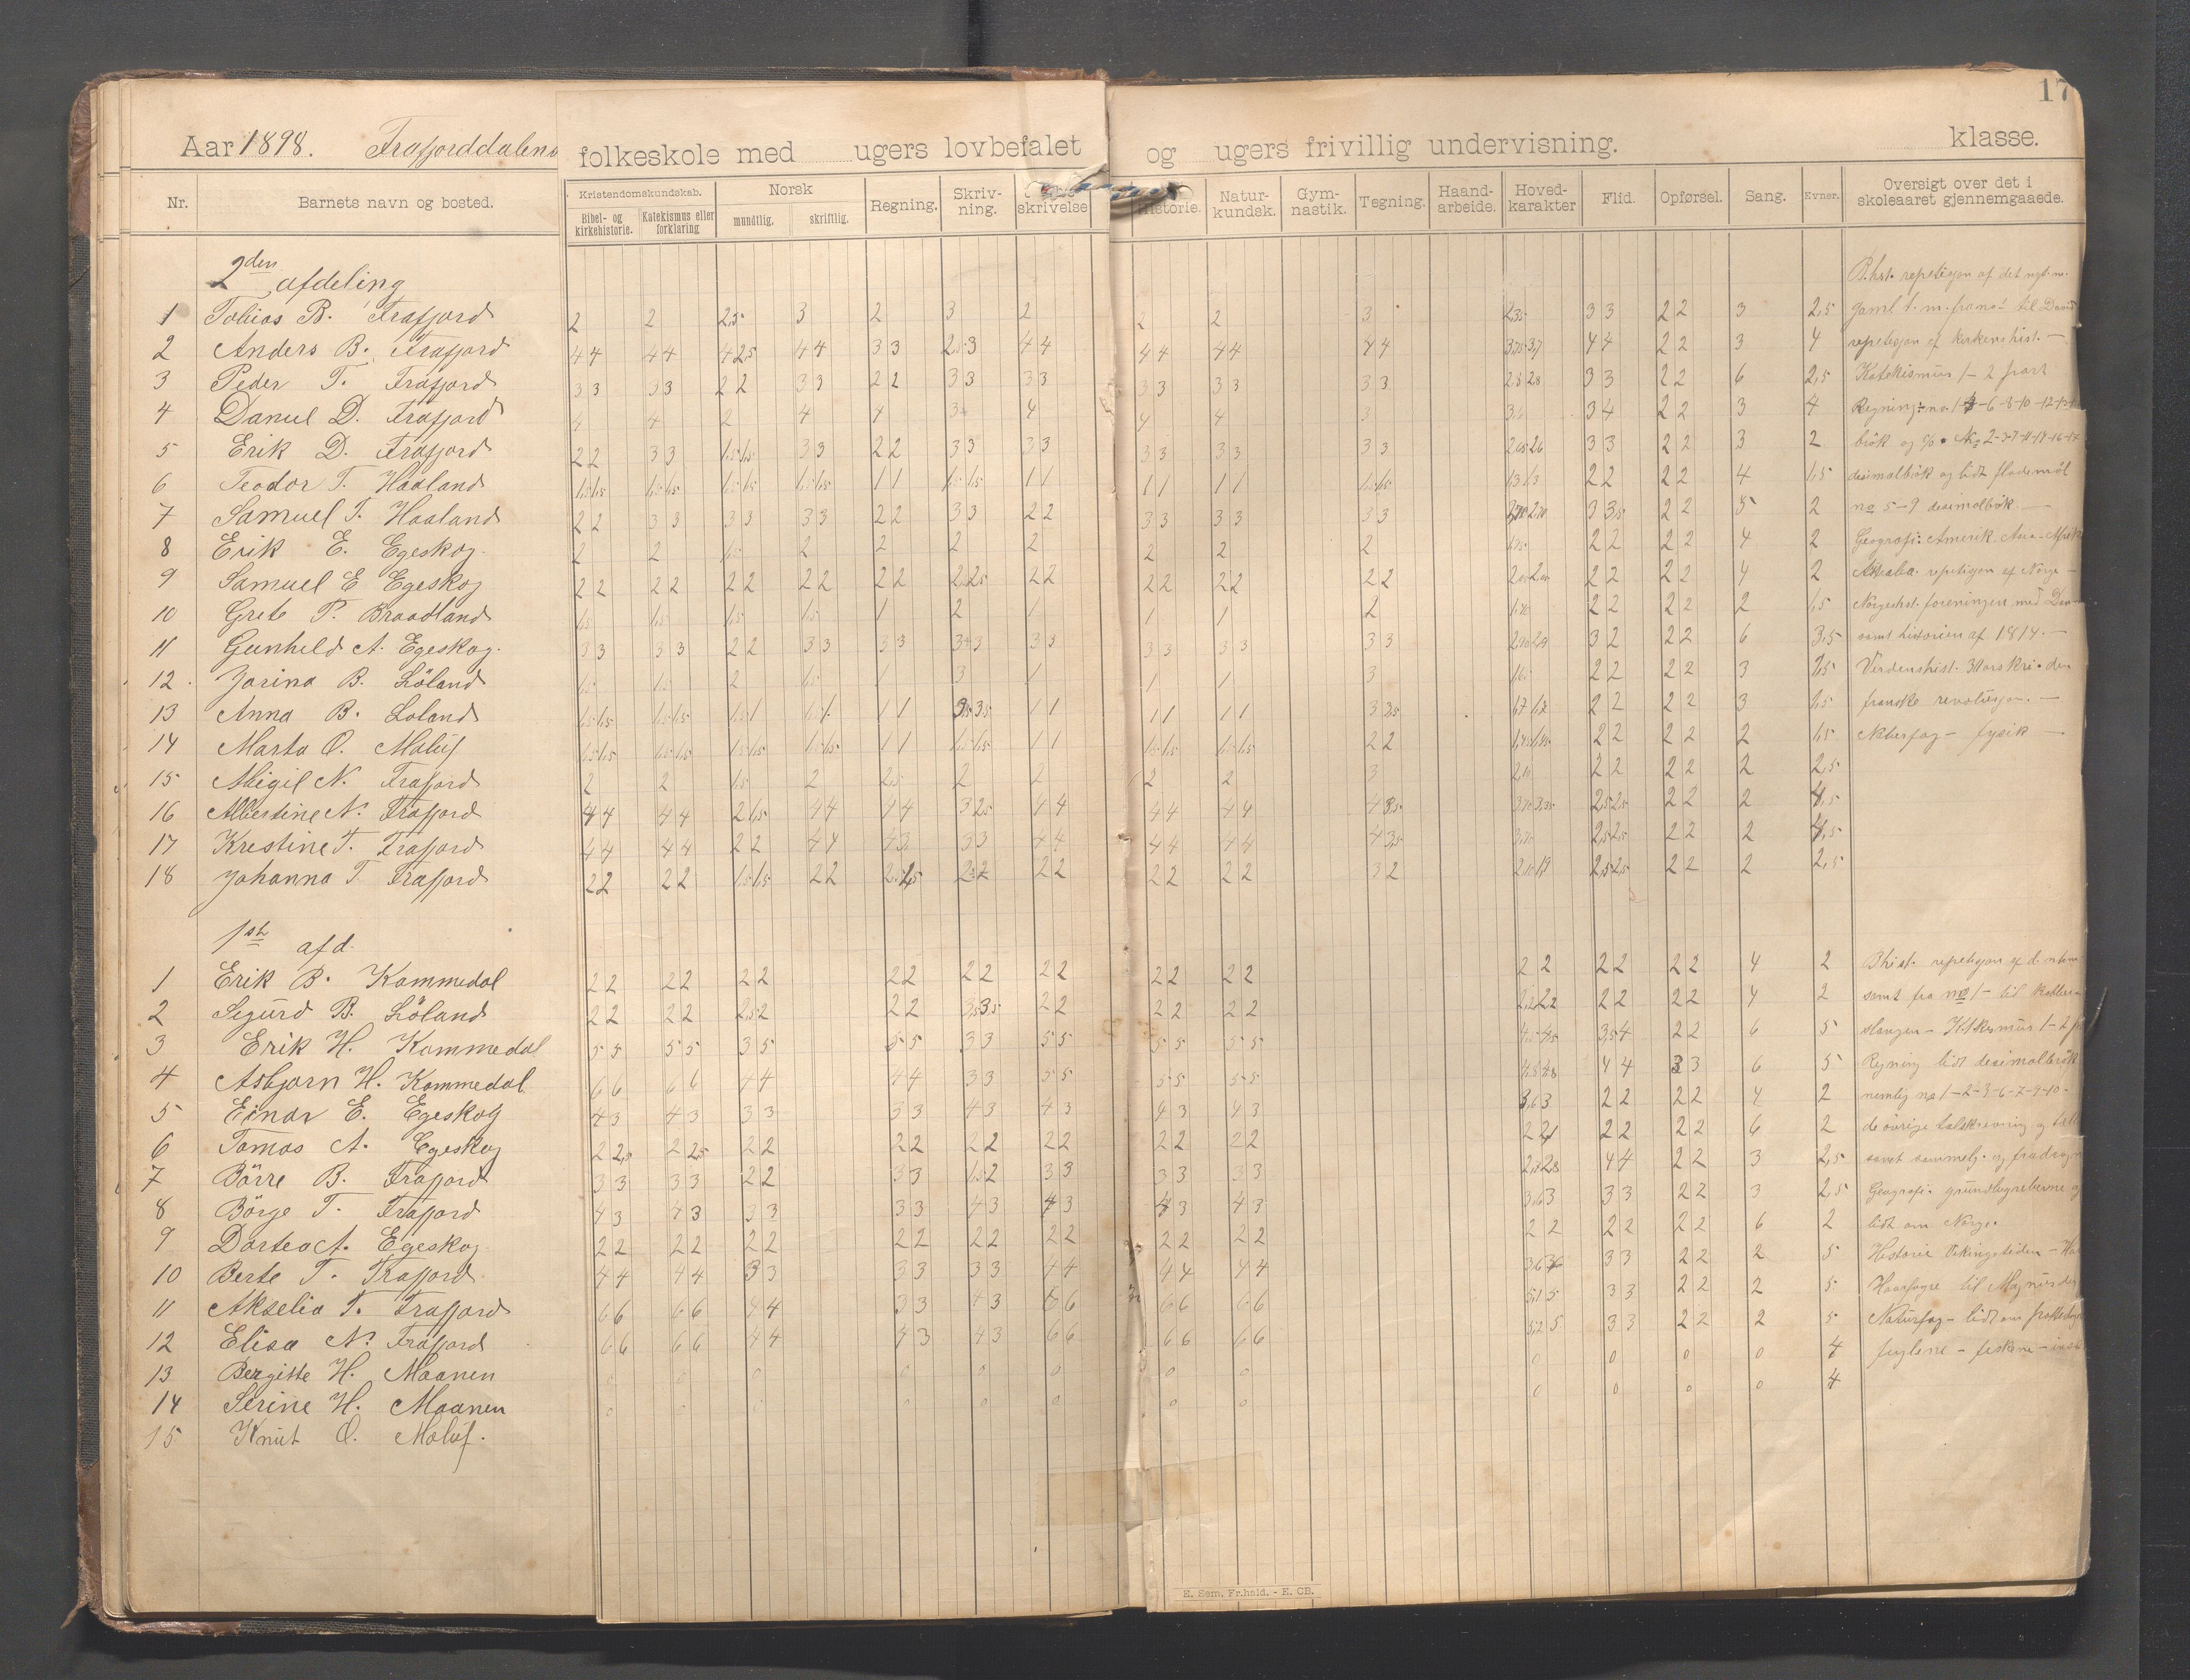 17
Aar 1898. Frafjorddalens folkeskole med ugers lovbefalet og ugers frivillig undervisning. klasse.
Nr. Barnets navn og bosted. Kristendomskundskab. Bibel- og kirkehistorie. Katekismus eller forklaring Norsk mundtlig. skriftlig. Regning. Skriv-ning. skrivelse Historie. Natur-kundsk. Gym-nastik. Tegning. Haand-arbeide. Hoved-karakter Flid. Opførsel. Sang. Evner. Oversigt over det i skoleaaret gjennemgaaede.
2den afdeling
B.hst. repetisjon af det nyt.m.
1 Tobias B. Frafjord 2 2 2,5 3 2 3 2 2 2 3 2,35 3 3 2 2 3 2,5 gaml t. m. fra no 1 til David
2 Anders B. Frafjord 4 4 4 4 4 2,5 4 4 3 3 2,5 3 4 4 4 4 4 4 4 4 3,75 3,7 4 4 2 2 3 4 repetisjon af kirkens hist. —
3 Peder T. Frafjord 3 3 3 3 2 2 3 3 2 2 3 3 3 3 3 3 3 3 3 3 2,8 2,8 3 3 2 2 6 2,5 Katekismus 1 – 2 part
4 Daniel D. Frafjord 4 4 2 4 4 3 4 4 4 3 3,6 3 4 2 2 3 4
5 Erik D. Frafjord 2 2 3 3 1,5 1,5 3 3 2 2 3 3 3 3 3 3 3 3 3 3 2,65 2,6 3 3 2 2 3 2
6 Teodor T. Haaland 1,5 1,5 1,5 1,5 1,5 1,5 1,5 1,5 1 1 1,5 1,5 1 1 1 1 1 1 1,5 1,5 1,3 1,3 2 2 2 2 4 1,5 desimalbrök og lidt flademöl
7 Samuel T. Haaland 2 2 3 3 3 3 3 3 2 2 3 3 2 2 3 3 3 3 3 3 2,70 3 3,5 2 2 5 2 no 5 – 9 desimalbrök. —
8 Erik E. Egeskog. 2 2 1,5 2 2 2 2 2 2 2 1,95 2 2 2 2 4 2 Geografi: Amerik. Asia – Afrik
9 Samuel E Egeskog 2 2 2 2 2 2 2 2 2 2 2,5 2,5 2 2 2 2 2 2 2 2 2 2 2 2 4 2 repetisjon af Norge —
10 Grete P. Braadland 1,5 1,5 1,5 1,5 1 2 1 1 1 2 2 2 2 2 2 1,5 Norgeshst. foreningen med Dan
11 Gunhild A. Egeskog. 3 3 3 3 2 2 3 3 3 3 3 3 3 3 3 3 3 3 3 3 3 2 2 2 6 3,5 samt historien af 1814. —
12 Jorina B. Löland 1,5 1,5 2 1,5 1 3 1 1 1 3 1,65 2 2 2 2 3 1,5 Verdenshist. den
13 Anna B. Loland 1,5 1,5 1,5 1,5 1,5 1 1,5 1 1 1 3,5 3,5 1 1 1 1 1 1 3 3,5 1,7 1,7 2 2 2 2 3 1,5 franske revolusjon. —
14 Marta O. Molaug 1,5 1,5 1,5 1,5 1,5 1,5 1,5 1,5 1 1 1,5 1,5 1 1 1,5 1,5 1,5 1,5 2 2 1,45 1,45 2 2 2 2 2 1,5 fysik —
15 Abigil N. Frafjord 2 2 1,5 2 2,5 2 2 2 2 3 2,10 2 2 2 2 2 2,5
16 Albertine N. Frafjord 4 4 4 4 2 1,5 4 4 4 4 3 2,5 4 4 4 4 4 4 4 3,5 2,5 2,5 2 2 2 4,5
17 Krestine T. Frafjord 4 4 4 4 2 2 4 4 4 3 3 3 4 4 4 4 4 4 4 3,5 2,5 2,5 2 2 2 4,5
18 Johanna T. Frafjord 2 2 2 2 1,5 1,5 2 2 2 2 2 2 2 2 2 2 3 2 2,5 2,5 2 2 2 2,5
1st afd.
1 Erik B. Kommedal 2 2 2 2 2 2 2 2 2 2 2 2 2 2 2 2 2 2 2 2 2 2 4 2 Bhist. repetisjon af d. nt.m
2 Sigurd B. Löland 2 2 2 2 2,5 2 2 2 3,5 3,5 2 2 2 2 2 2 2,2 2,2 2 2 2 2 4 2 samt fra no 1 – til
3 Erik H. Kommedal 5 5 5 5 3 5 5 5 3 3 5 5 5 5 5 5 4,5 4,5 3,5 4 2 2 6 5 slangen – 1 – 2
4 Asbjorn H. Kommedal 6 6 6 6 4 4 4 4 3 3 5 5 5 5 5 5 4,5 4,8 4 4 3 3 6 5 Regning lidt desimalbrök
5 Einar E. Egeskog 4 3 4 3 3 3 3 3 4 3 4 3 4 3 4 3 3,6 3 2 2 2 2 4 2 nemlig no 1 – 2 – 3 – 6 – 7 – 9 – 10 –
6 Tomas A. Egeskog 2 2,5 2 2,5 2 2 2 2 2 2 2 2 2 2 2 2 2 2,1 2 2 2 2 6 2 de övrige talskrivning og tall
7 Börre B. Frafjord 3 3 3 3 2 2 3 3 1,5 2 3 3 3 3 3 3 4 4 2 2 3 2,5 samt sammelg. og fradrag
8 Börge T. Frafjord 4 3 4 3 3 3 3 3 4 3 4 3 4 3 4 3 3,6 3 3 3 2 2 3 2,5 Geografi. grundbegreberne og
9 Dortea A. Egeskog 2 2 2 2 2 2 2 2 2 2 2 2 2 2 2 2 2 2 2 2 2 2 6 2 lidt om Norge.
10 Berte T. Frafjord 4 4 4 4 3 3 3 3 3 3 4 4 4 4 4 4 3,6 3,6 3 3 2 2 2 5 Historie Vikingstiden –
11 Akselia T. Frafjord 6 6 6 6 4 4 3 3 4 3 6 6 6 6 6 6 5,1 5 3 3 2 2 2 5 Haarfagre til Magnus
12 Elisa N. Frafjord 6 6 6 6 4 4 4 3 4 3 6 6 6 6 6 6 5,2 5 3 3 2 2 2 5 Naturfag – lidt om
13 Bergitte H. Maanen 0 0 0 0 0 0 0 0 0 0 0 0 4 fuglene – fiskene –
14 Serine H. Maanen 0 0 0 0 0 0 0 0 0 0 0 0 4
15 Knut O. Molaug.
E. Sem. Fr.hald. - E. CB.